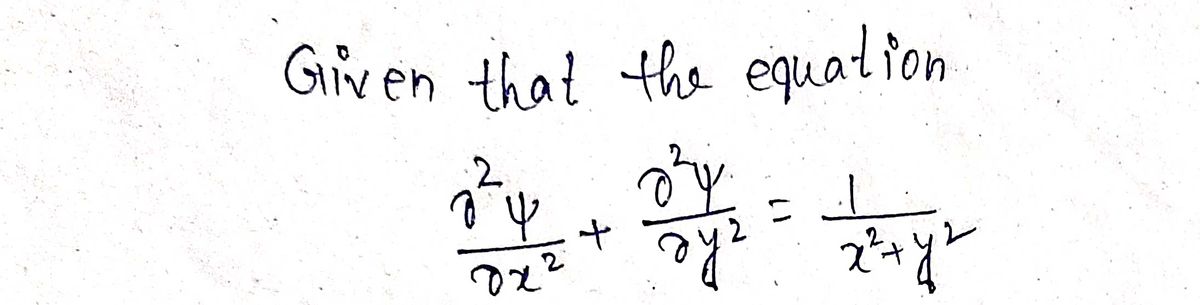 Given that the equation
∂²ψ/∂x² + ∂²ψ/∂y² = 1/(x²+y²)